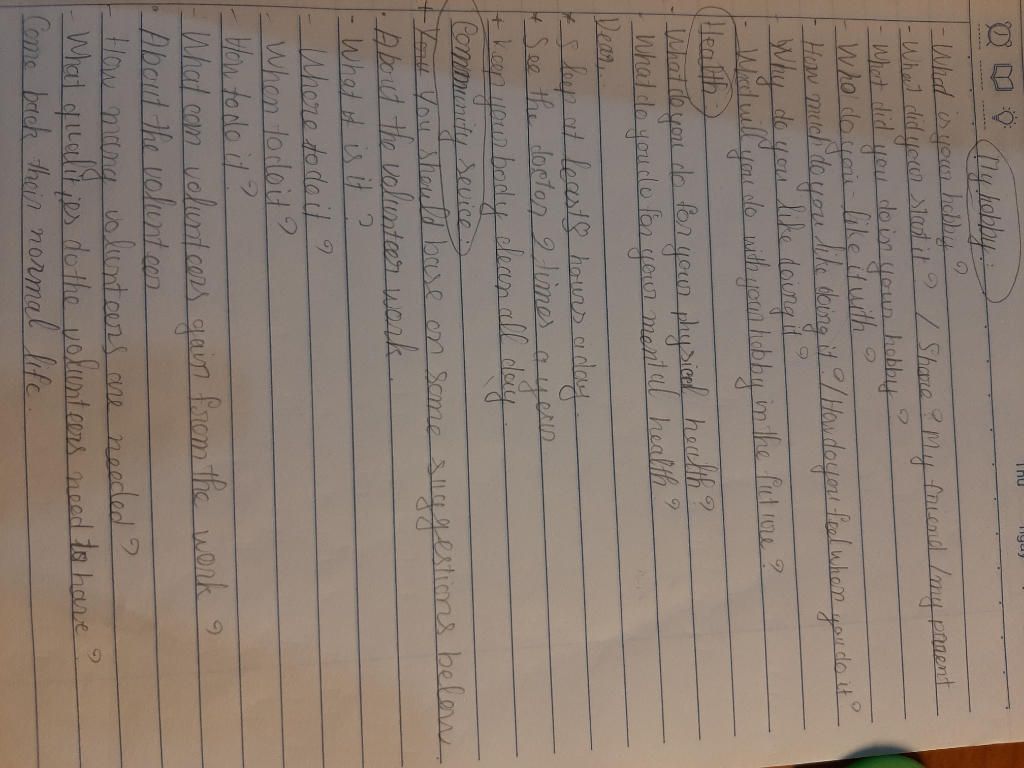 My hobby:
- What is your hobby?
- When did you start it? / Share? My friend / my parent
- What did you do in your hobby?
- Who do you like it with?
- How much do you like doing it? / How do you feel when you do it?
- Why do you like doing it?
- What will you do with your hobby in the future?
Health:
- What do you do for your physical health?
- What do you do for your mental health?
* Sleep at least 8 hours a day.
* See the doctor 2 times a year
+ keep your body clean all day
Community service:
+ You should base on some suggestions below.
• About the volunteer work.
- What is it?
- Where to do it?
- When to do it?
- How to do it?
- What can volunteers gain from the work?
• About the volunteer
- How many volunteers are needed?
- What qualities do the volunteers need to have?
Come back their normal life.